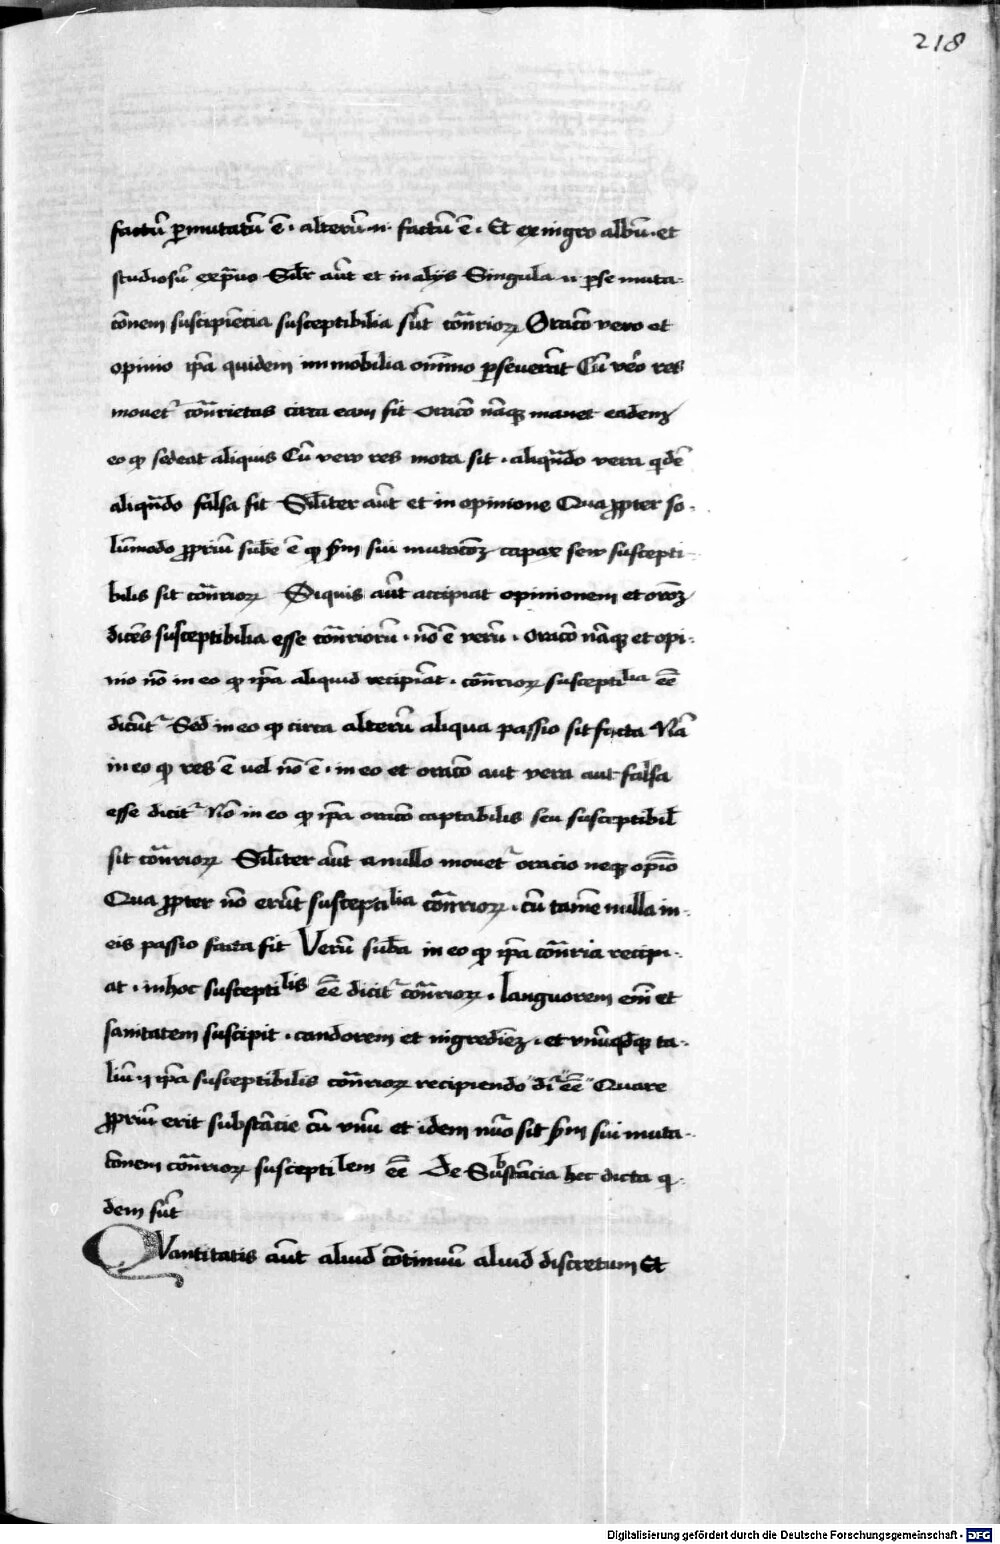 218
factū ꝑmutatū ē · alterū ·n· factū ē · Et ex nigro albū · et
studiosū ex p̄uo Silr̄ aūt et in alijs Singula ·n· ꝑ se muta-
cōnem suscipiēcia susceptibilia sūt cōn̄rioꝝ Oracō vero et
opinio ip̄a quidem immobilia om̄īno ꝑseuerāt Cū vēo res
mouet᷑ cōn̄rietas circa eam fit oracō nāqꝫ manet eadeꝫ
eo ꝙ sedeat aliquis Cū vero res mota sit · aliqn̄do vera qͥdē
aliqn̄do falsa fit Silīter aūt et in opinione Qua ꝓpter so-
lūmodo ꝓpriū sub̄e ē ꝙ ẜm sui mutacōꝫ capax seu suscepti-
bilis sit cōn̄rioꝝ Siquis aūt accipiat opinionem et orōꝫ
dicēs susceptibilia esse cōn̄riorū · nō ē verū · oracō nāqꝫ et opi-
nio nō in eo ꝙ ip̄a aliquid recipiāt · cōn̄rioꝝ susceptilia eē̄
dicūt᷑ Sed in eo ꝙ circa alterū aliqua passio sit facta Nā
in eo ꝙ res ē uel nō ē · in eo et oracō aut vera aut falsa
esse dicit᷑ Nō in eo ꝙ ip̄a oracō captabilis seu susceptibil̄
sit cōn̄rioꝝ Silīter aūt a nullo mouet᷑ oracio neqꝫ opīo
Qua ꝓpter nō erūt susceptilia cōn̄rioꝝ · cū tamē nulla in-
eis passio facta sit Verū sub̄a in eo ꝙ ip̄a cōn̄ria recipi-
at · in hoc susceptilis eē̄ dicit᷑ cōn̄rioꝝ · languorem em̄ et
sanitatem suscipit · candorem et nigrediēꝫ · et vnūqd̄qꝫ ta-
liū ip̄a susceptibilis cōn̄rioꝝ recipiendo di᷑ eē̄ Quare
ꝓpriū erit substācie cū vnū et idem nūo sit ẜm sui muta-
cōnem cōn̄rioꝝ susceptilem eē̄ De Substācia hec dicta qͥ-
dem sūt
Quantitatis aūt aliud cōtinuū aliud discretum Et
Digitalisierung gefördert durch die Deutsche Forschungsgemeinschaft - DFG